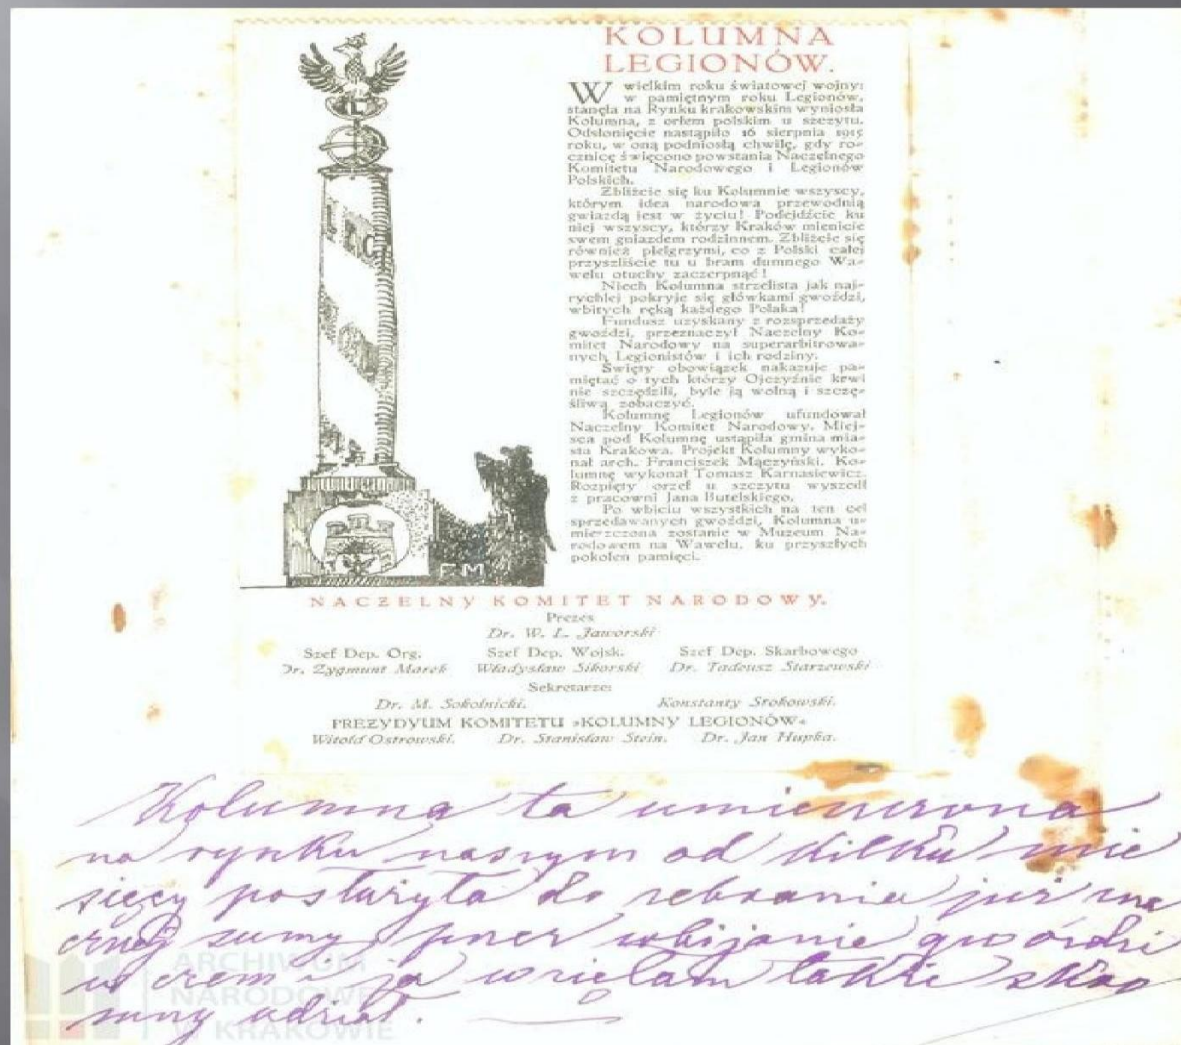 KOLUMNA
LEGIONÓW.
W wielkim roku światowej wojny:
w pamiętnym roku Legionów,
stanęła na Rynku krakowskim wyniosła
Kolumna, z orłem polskim u szczytu.
Odsłonięcie nastąpiło 16 sierpnia 1915
roku, w oną podniosłą chwilę, gdy ro-
cznicę święcono powstania Naczelnego
Komitetu Narodowego i Legionów
Polskich.
Zbliżcie się ku Kolumnie wszyscy,
którym idea narodowa przewodnią
gwiazdą jest w życiu! Podejdźcie ku
niej wszyscy, którzy Kraków mienicie
swem gniazdem rodzinnem. Zbliżcie się
również pielgrzymi, co z Polski całej
przyszliście tu u bram dumnego Wa-
welu otuchy zaczerpnąć!
Niech Kolumna strzelista jak naj-
rychlej pokryje się główkami gwoździ,
wbitych ręką każdego Polaka!
Fundusz uzyskany z rozsprzedaży
gwoździ, przeznaczył Naczelny Ko-
mitet Narodowy na superarbitrowa-
nych Legionistów i ich rodziny.
Święty obowiązek nakazuje pa-
miętać o tych którzy Ojczyźnie krwi
nie szczędzili, byle ją wolną i szczę-
śliwą zobaczyć.
Kolumnę Legionów ufundował
Naczelny Komitet Narodowy. Miej-
sca pod Kolumnę ustąpiła gmina mia-
sta Krakowa. Projekt Kolumny wyko-
nał arch. Franciszek Mączyński. Ko-
lumnę wykonał Tomasz Karnasiewicz.
Rozpięty orzeł u szczytu wyszedł
z pracowni Jana Butelskiego.
Po wbiciu wszystkich na ten cel
sprzedawanych gwoździ, Kolumna u-
mieszczona zostanie w Muzeum Na-
rodowem na Wawelu, ku przyszłych
pokoleń pamięci.
LEG
F.M
NACZELNY KOMITET NARODOWY.
Prezes
Dr. W. L. Jaworski
Szef Dep. Org. Szef Dep. Wojsk. Szef Dep. Skarbowego
Dr. Zygmunt Marek Władysław Sikorski Dr. Tadeusz Starzewski
Sekretarze:
Dr. M. Sokolnicki. Konstanty Srokowski.
PREZYDYUM KOMITETU »KOLUMNY LEGIONÓW«
Witold Ostrowski. Dr. Stanisław Stein. Dr. Jan Hupka.
Kolumna ta umieszczona
na rynku naszym od kilku mie
sięcy posłużyła do zebrania już zna
cznej sumy przez wbijanie gwoździ
w czem i ja wzięłam także skro
mny udział.
ARCHIWUM
NARODOWE
W KRAKOWIE